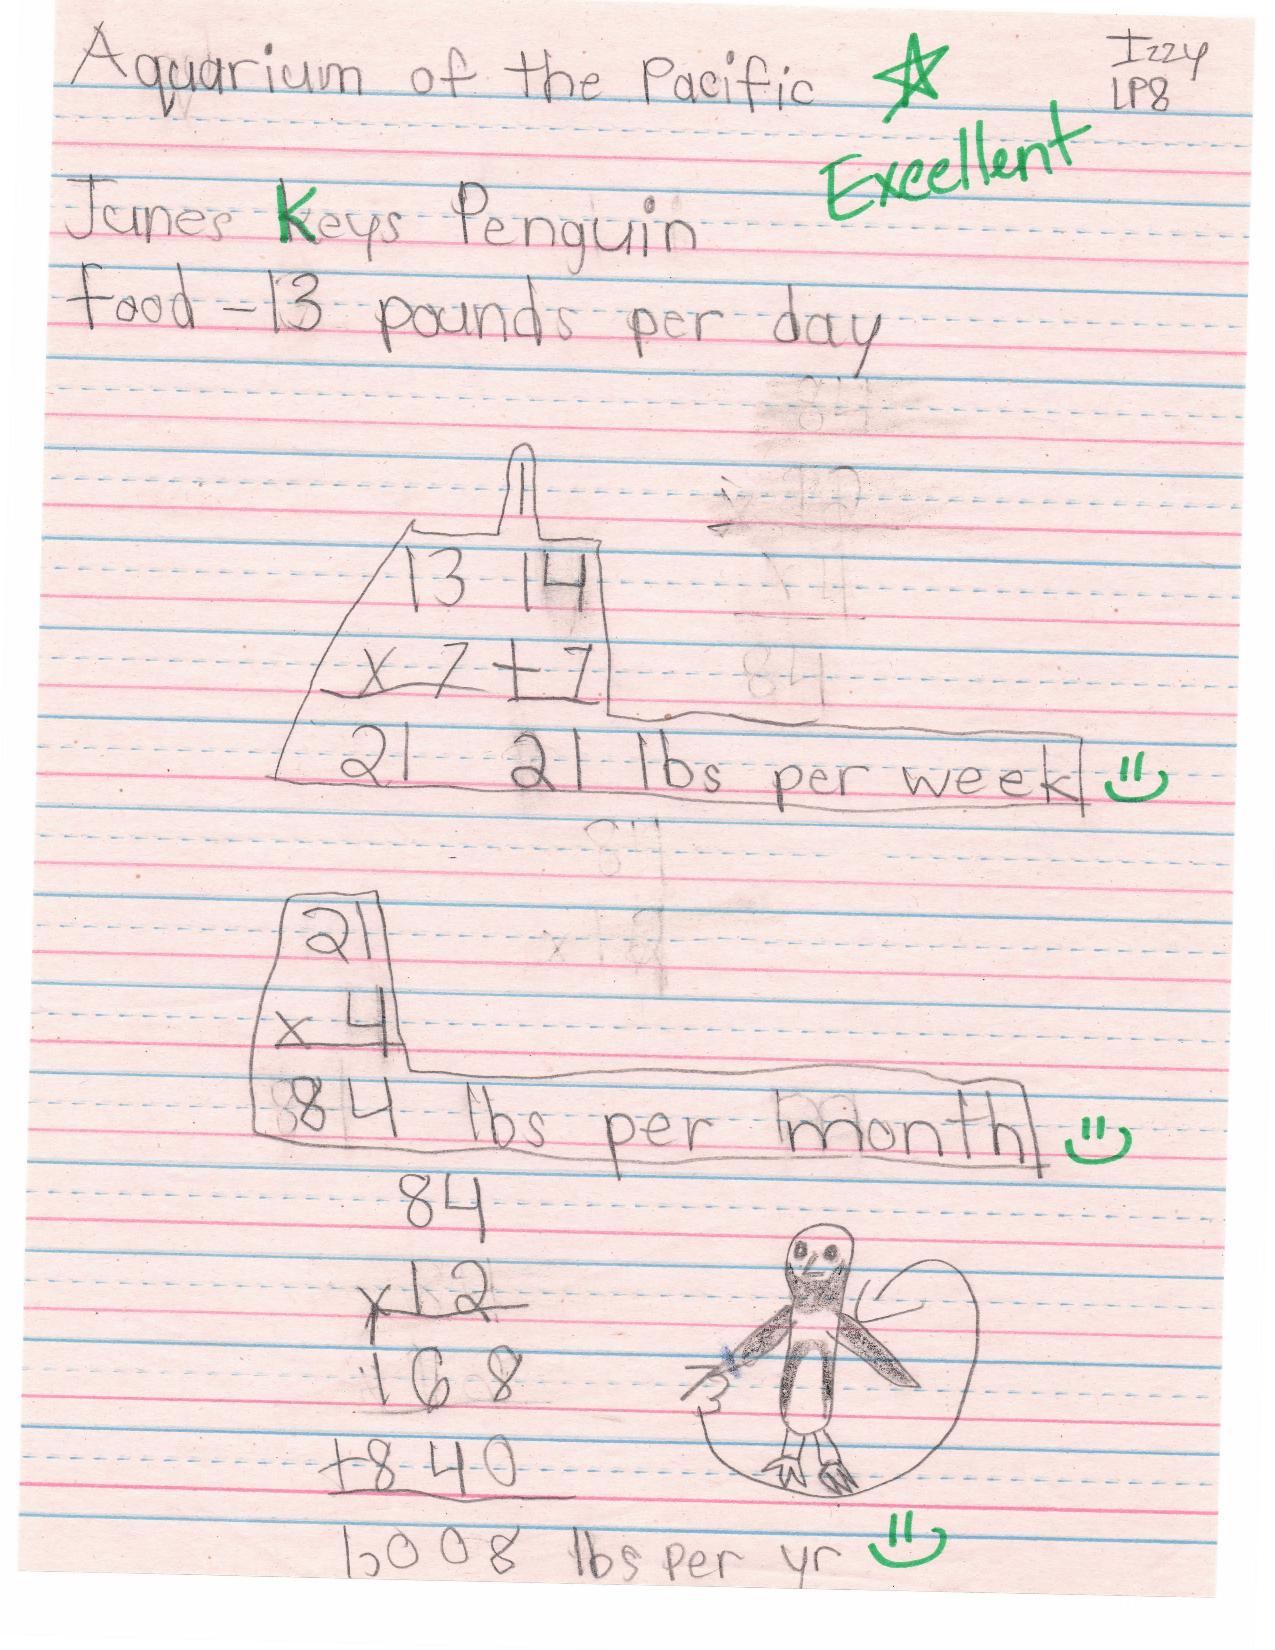 Aquarium of the Pacific
Izzy
LP8
Excellent
Junes Keys Penguin
food - 13 pounds per day
1
13 14
x 7 + 7
21 21 lbs per week
21
x 4
84 lbs per month
84
x 12
168
+840
1,008 lbs per yr